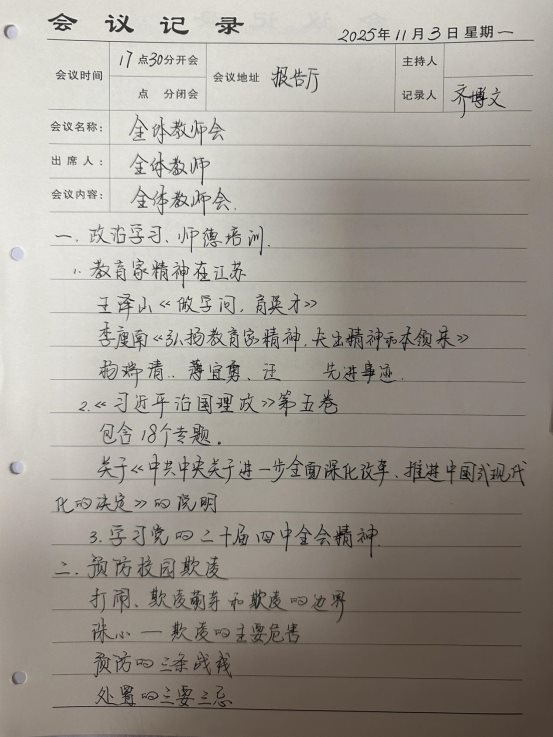 会议记录
2025年11月3日 星期一
会议时间 17点30分开会 点 分闭会 会议地址 报告厅 主持人 记录人 齐博文
会议名称: 全体教师会
出席人: 全体教师
会议内容: 全体教师会.
一、政治学习、师德培训.
1. 教育家精神在江苏
王泽山《做学问,育英才》
李庾南《弘扬教育家精神, 精神和本领来》
杨瑞清、 薄宜勇、汪 先进事迹.
2.《习近平治国理政》第五卷
包含18个专题.
关于《中共中央关于进一步全面深化改革、推进中国式现代
化的决定》的说明
3. 学习党的二十届四中全会精神.
二、预防校园欺凌
打闹、欺凌萌芽和欺凌的边界
诛心 — 欺凌的主要危害
预防的三条战线
处置的三要三忌